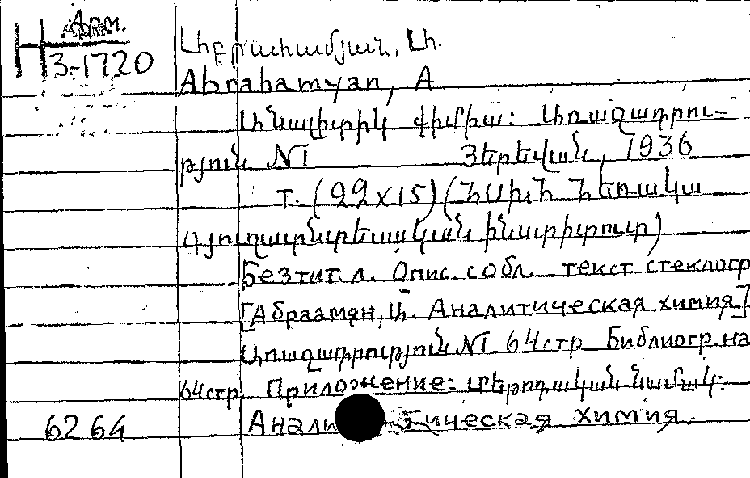 Арм.
H 3-1720
Աբրահամյան, Ա.
Abrahamyan, A
Անալիտիկ քիմիա: Առաջադրու-
թյուն N1 Յերեվան, 1936
т. (22x15) (ՀՍԽՀ Հեռակա
Գյուղատնտեսական ինստիտուտ)
Без тит. л. Опис. с обл. текст стеклогр
[Абраамян, Ա. Аналитическая химия]
Առաջադրություն N1 64 стр Библиогр. на
64 стр. Приложение: մեթոդական նամակ.
6264 Анали тическая химия.